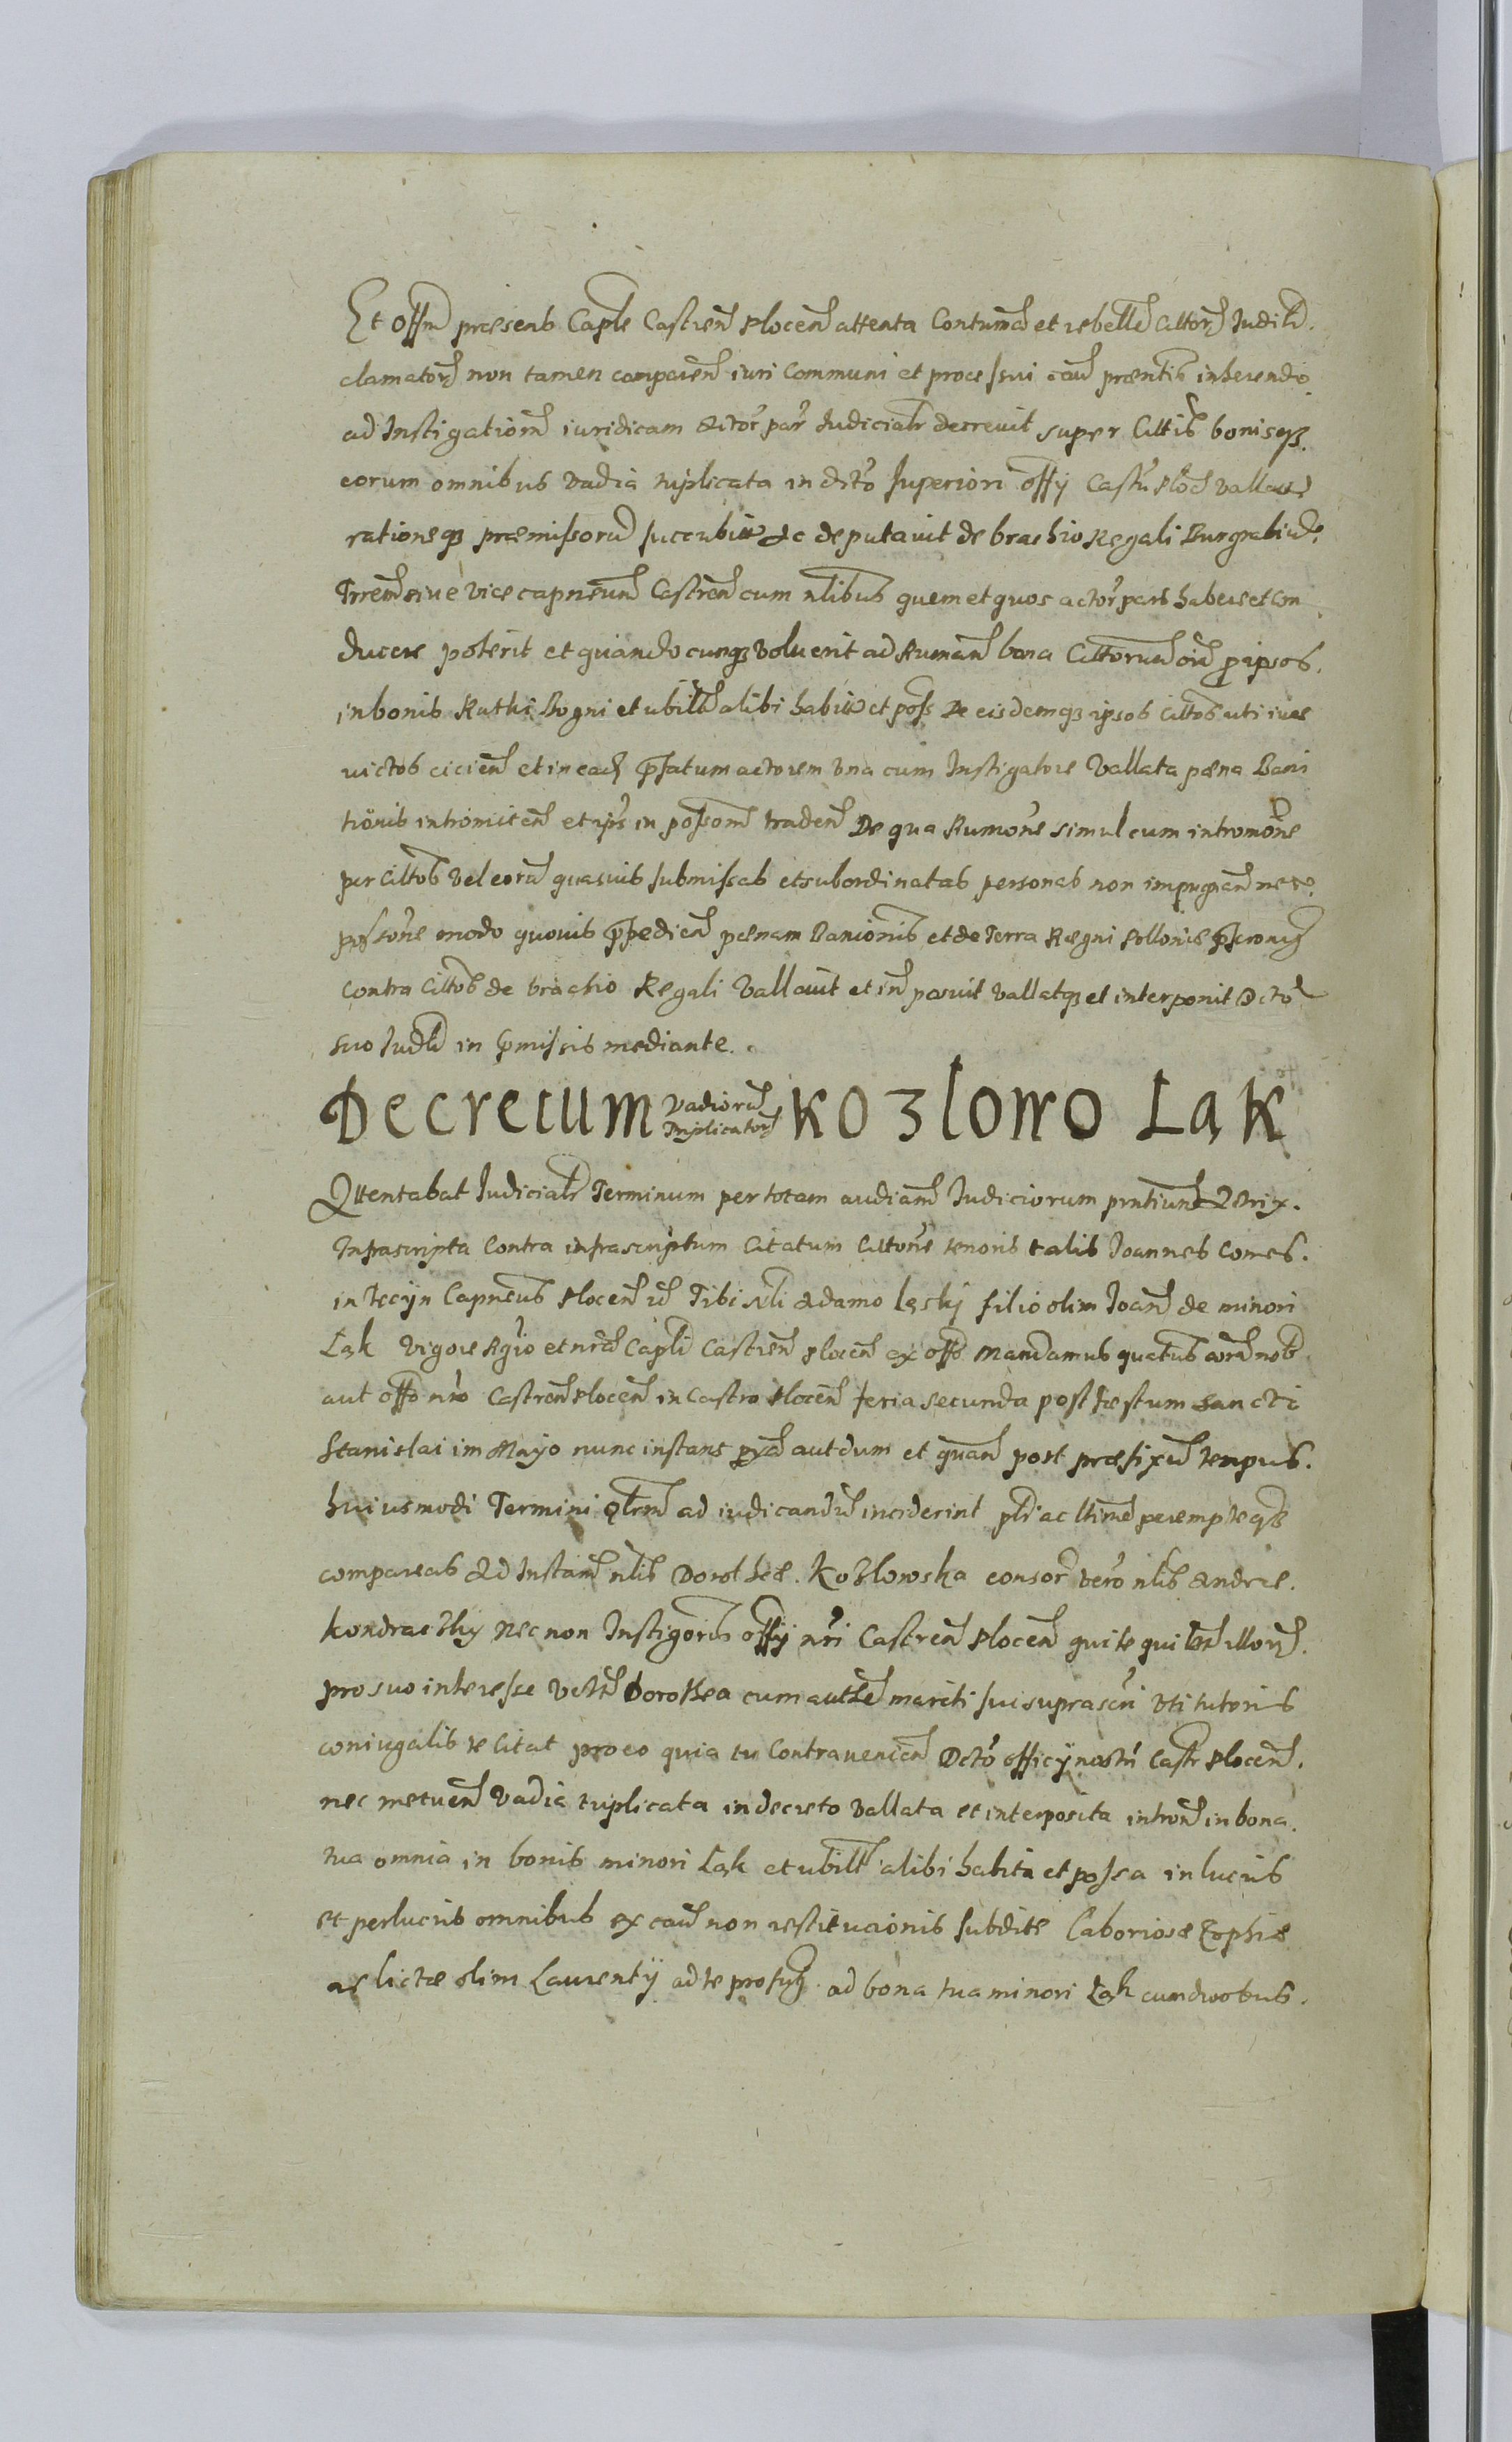 Et offm præsens Caple Castren Plocen attenta Contuma et rebelle Cittor Judild.
clamator non tamen comparen iuri Communi et processui caus præntis inherendo
ad Instigationem iuridicam Actor par Judicialr decrevit super Cittis bonisqz
eorum omnibus vadia triplicata in dcto superiori offy Castr Ploc vallata
rationeqz præmissoru succubuit Ac deputauit de brachio Regali Burgrabiu
Trrem siue vice capneum Castren cum nlibus quem et quos actor pars habere et con
ducere poterit et quandocunqz voluerit ad Ruman bona Cittorum oia p ipsos
in bonis Rutki Bogni et ubilt alibi habita et poss De eisdemqz ipsos Cittos uti iure
victos eicien et in eadz pfatum actorem vna cum Instigatore vallata pœna Bani
tionis intromitten et ips in possom traden De qua Rumone simul cum intromone
per Cittos vel eoru quasuis submissas et subordinatas personas non impugnan nec
possone modo quouis ppedien pœnam Banionis et de Terra Regni Polloniæ
Contra Cittos de brachio Regali Vallauit et in posuit vallatqz et interponit Dcto
suo Judli in pmissis mediante.
Decretum vadioru triplicator Kozlowo Łąk
Attentabat Judicialr Terminum per totam audiam Judiciorum prntium Actrix.
Infrascripta Contra infrascriptum Citatum Cittone tenoris talis Joannes Comes.
in Tecyn Capneus Plocen Tibi Nli Adamo Łąski filio olim Joan de minori
Łąk Vigore Rgio et nra Capli Castren Plocen ex offo Mandamus quatus cora nob
aut offo nro Castren Plocen in Castro Plocen feria secunda post Festum Sancti
Stanislai im Mayo nunc instans pxa aut dum et quan post præfixu tempus.
huiusmodi Termini qlrm ad iudicandu inciderint plr ac ltime perempteqz
compareas Ad Instam nlis Dorotheæ. Kozlowska consor vero nlis Andreæ.
Kondraczky Nec non Instigoris offy nri Castren Plocen qui te quilt illor.
pro suo interesse Dorothea cum authe mariti sui suprascri vti tutoris
coniugalis te Citat pro eo quia tu Contravenien Dcto officy nostri Castr Plocen.
nec metuen vadia triplicata in decreto vallata et interposita introm in bona.
tua omnia in bonis minori Łąk et ubilt alibi habita et possa in lucris
et perlucris omnibus ex caus non restitucionis subditæ Laboriosæ Zophiæ
relictæ olim Laurenty ad te profug. ad bona tua minori Łąk cum duobus.